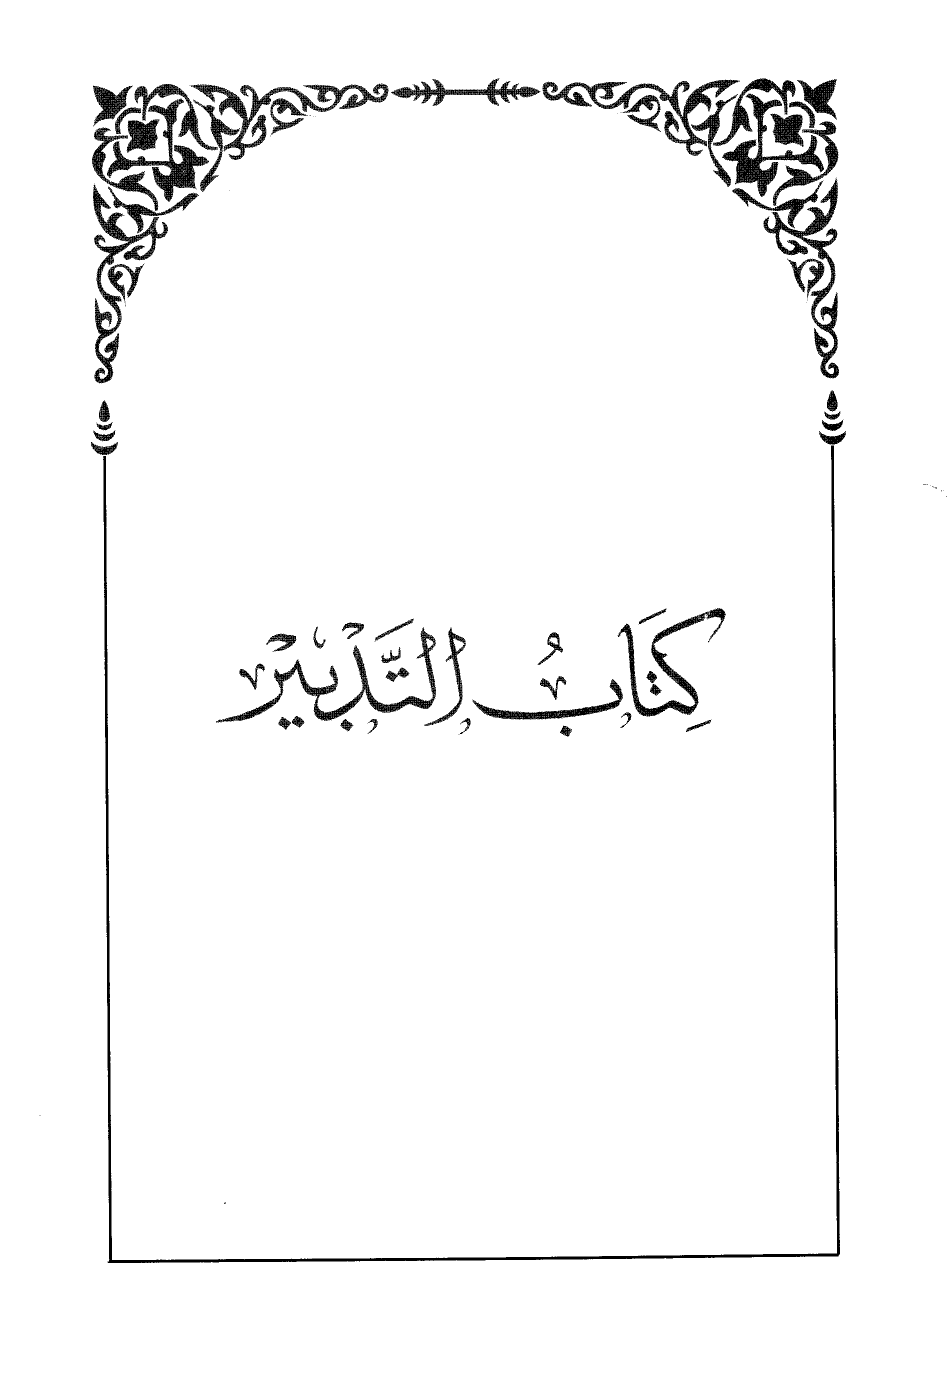 كِتَابُ التَّدْبِيْرِ